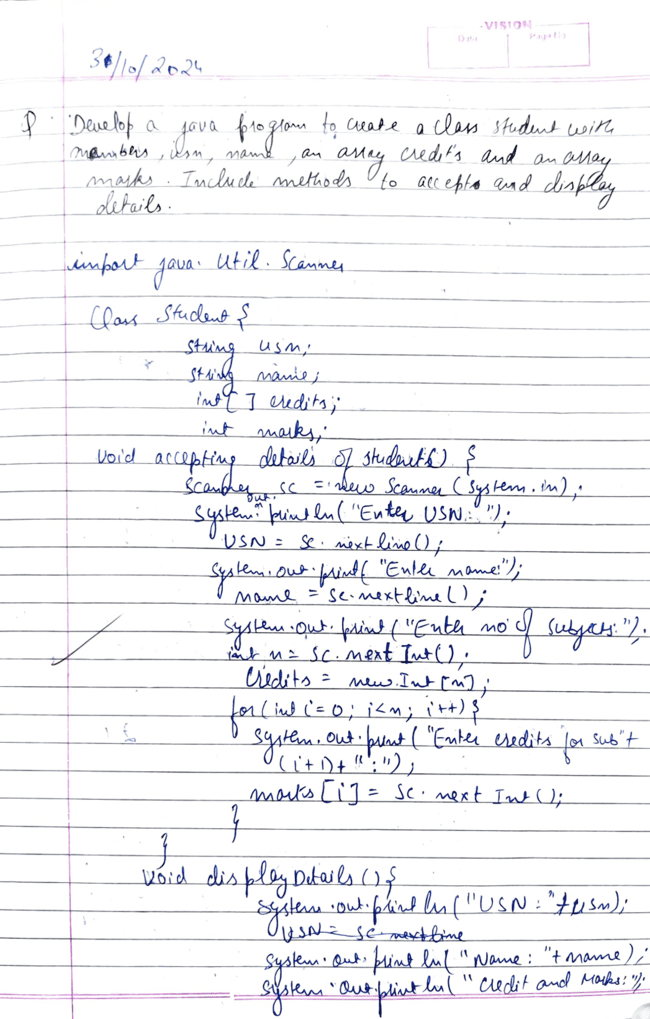 VISION
Date
Page No
31/10/2024
Develop a java program to create a class student with
members, usn, name, an array credits and an array
marks. Include methods to accept and display
details.
import java. Util. Scanner
Class Student {
string usn;
string name;
int[ ] credits;
int marks;
void accepting details of students() {
Scanner sc = new Scanner (system.in);
system.out.println("Enter USN: ");
USN = sc. nextline();
system.out.print( "Enter name:");
name = sc.nextline();
system.out. print ("Enter no of subjects:");
int n = sc. next Int();
Credits = new Int [n];
for(int i=0; i<n; i++) {
system.out.print ("Enter credits for sub"+
(i+1)+ ":");
marks [i] = sc. next Int();
}
}
void displayDetails () {
system.out.println("USN: "+usn);
USN = sc. nextline
system.out. println( "Name: "+name);
system.out.println( "Credit and Marks:");